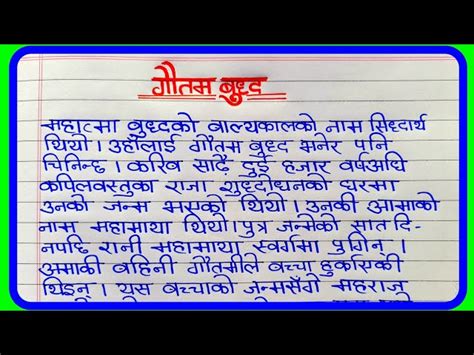 गौतम बुध्द
महात्मा बुध्दको बाल्यकालको नाम सिध्दार्थ
थियो। उहाँलाई गौतम बुध्द भनेर पनि
चिनिन्छ। करिब साढै दुई हजार वर्षअधि
कपिलवस्तुका राजा शुध्दोधनको घरमा
उनको जन्म भएको थियो। उनकी आमाको
नाम महामाया थियो। पुत्र जन्मेको सात दि-
नपछि रानी महामाया स्वर्गमा पुगिन्।
आमाकी बहिनी गौतमीले बच्चा हुर्काएकी
थिइन्। यस बच्चाको जन्मसँगै महराज